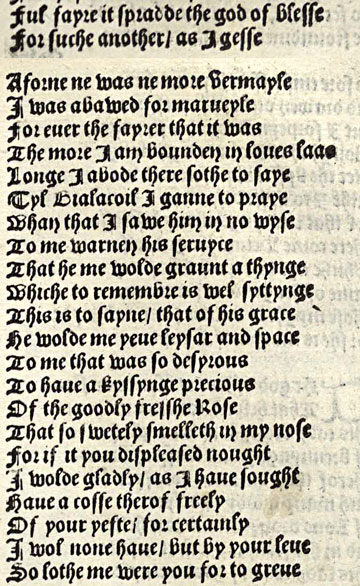 Ful fayre it spradde the god of blesse
For suche another/ as I gesse
Aforne ne was ne more vermayle
I was abawed for marueyle
For euer the fayrer that it was
The more I am bounden in loues laas
Longe I abode there sothe to saye
Tyl Bialacoil I ganne to praye
Whan that I sawe him in no wyse
To me warnen his seruyce
That he me wolde graunt a thynge
Whiche to remembre is wel syttynge
This is to sayne/ that of his grace
He wolde me yeue leysar and space
To me that was so desyrous
To haue a kyssynge precious
Of the goodly fresshe Rose
That so swetely smelleth in my nose
For if it you displeased nought
I wolde gladly/ as I haue sought
Haue a cosse therof freely
Of your yefte/ for certainly
I wol none haue/ but by your leue
So lothe me were you for to greue